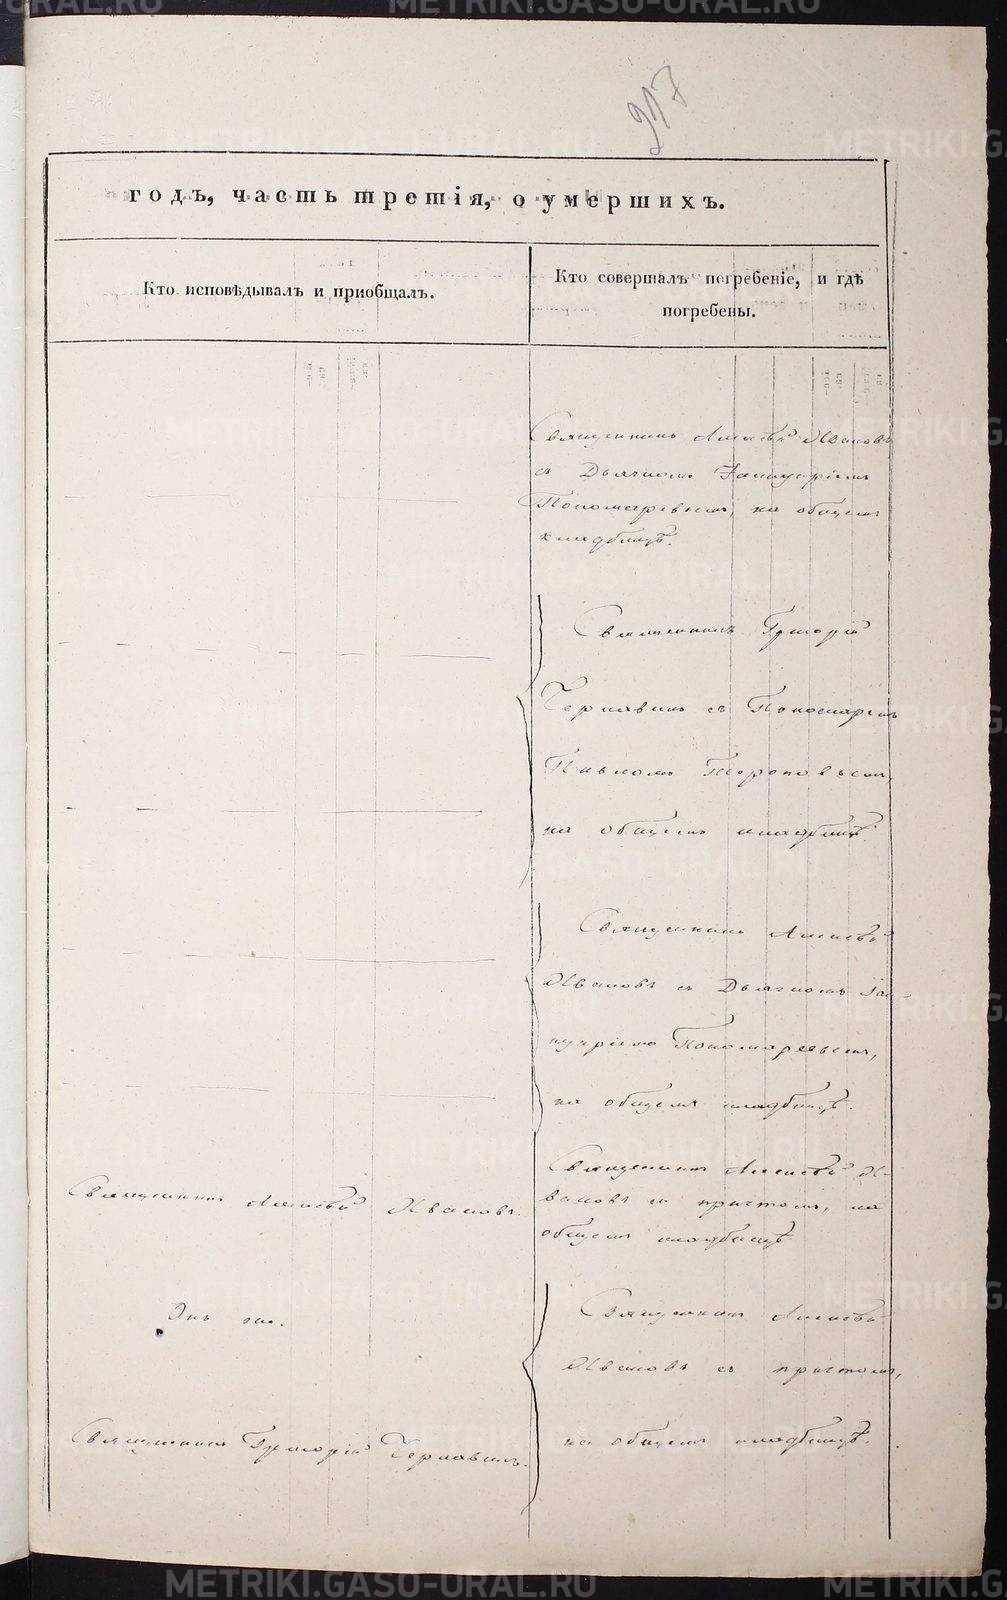 217
годъ, часть третія, о умершихъ.
Кто исповѣдывалъ и приобщалъ.
Кто совершалъ погребеніе, и гдѣ
погребены.
Священникъ Алексѣй Ивановъ
съ Дьячкомъ Іаннуаріемъ
Пономаревымъ, на общемъ
кладбищѣ.
Священникъ Григорій
Чернавинъ съ Пономаремъ
Павломъ Тороповымъ,
на общемъ кладбищѣ.
Священникъ Алексѣй
Ивановъ съ Дьячкомъ Іан-
нуаріемъ Пономаревымъ,
на общемъ кладбищѣ.
Священникъ Алексѣй Ивановъ.
Священникъ Алексѣй И-
вановъ съ причтомъ, на
общемъ кладбищѣ.
Онъ же.
Священникъ Алексѣй
Ивановъ съ причтомъ,
на общемъ кладбищѣ.
Священникъ Григорій Чернавинъ.
METRIKI.GASO-URAL.RU